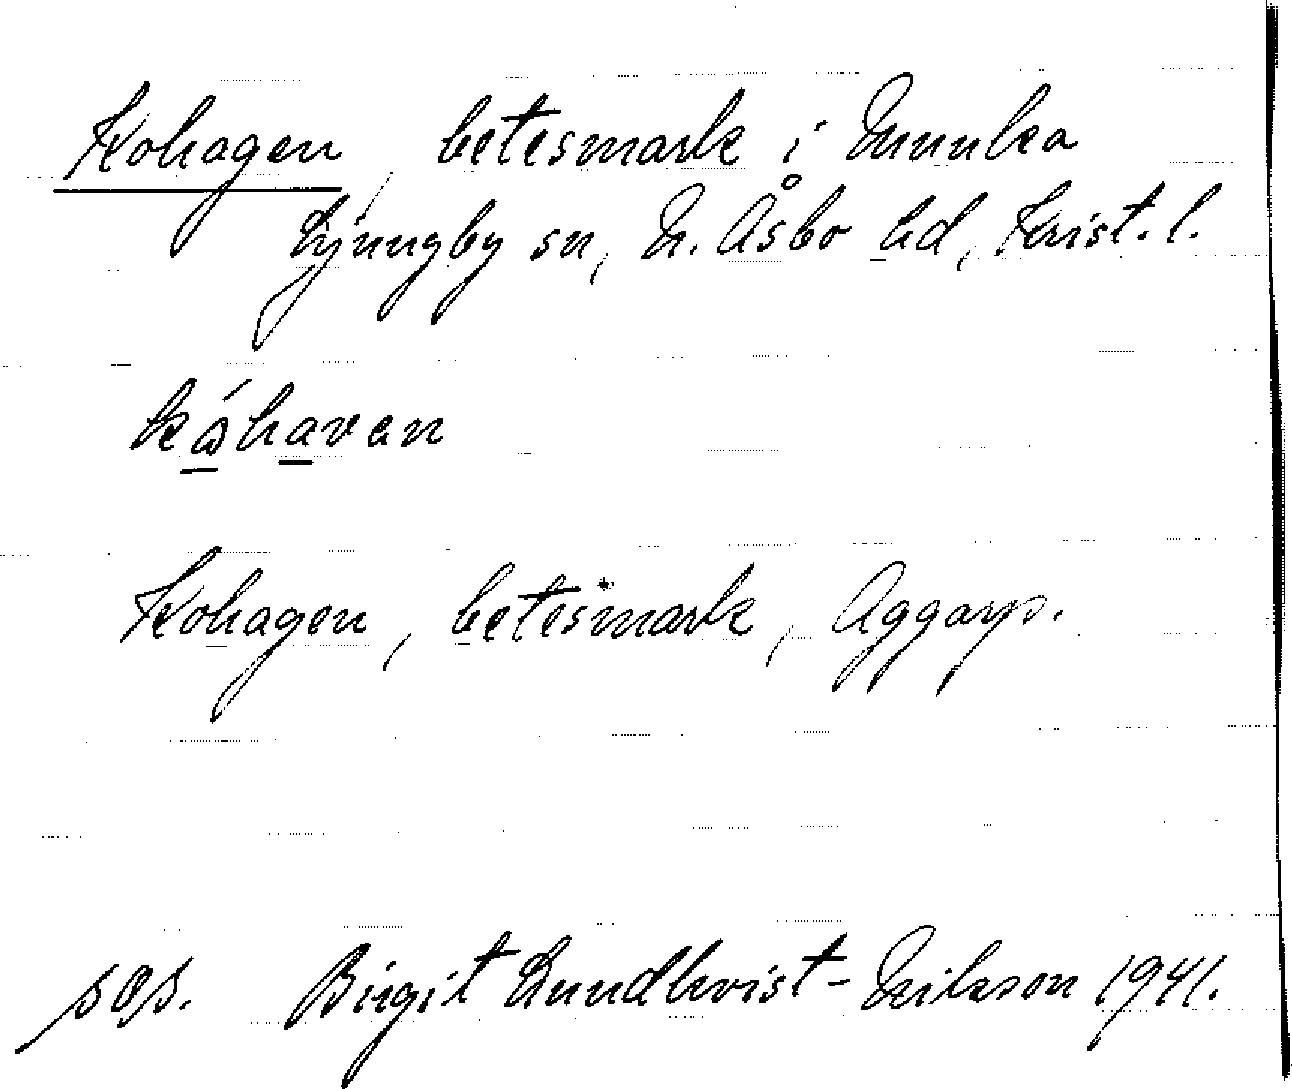 Kohagen, betesmark i Munka
Ljungby sn, N. Åsbo hd, Krist. l.
kɷ́havan
Kohagen, betesmark, Aggarp.
sos. Birgit Lundkvist-Nilsson 1941.